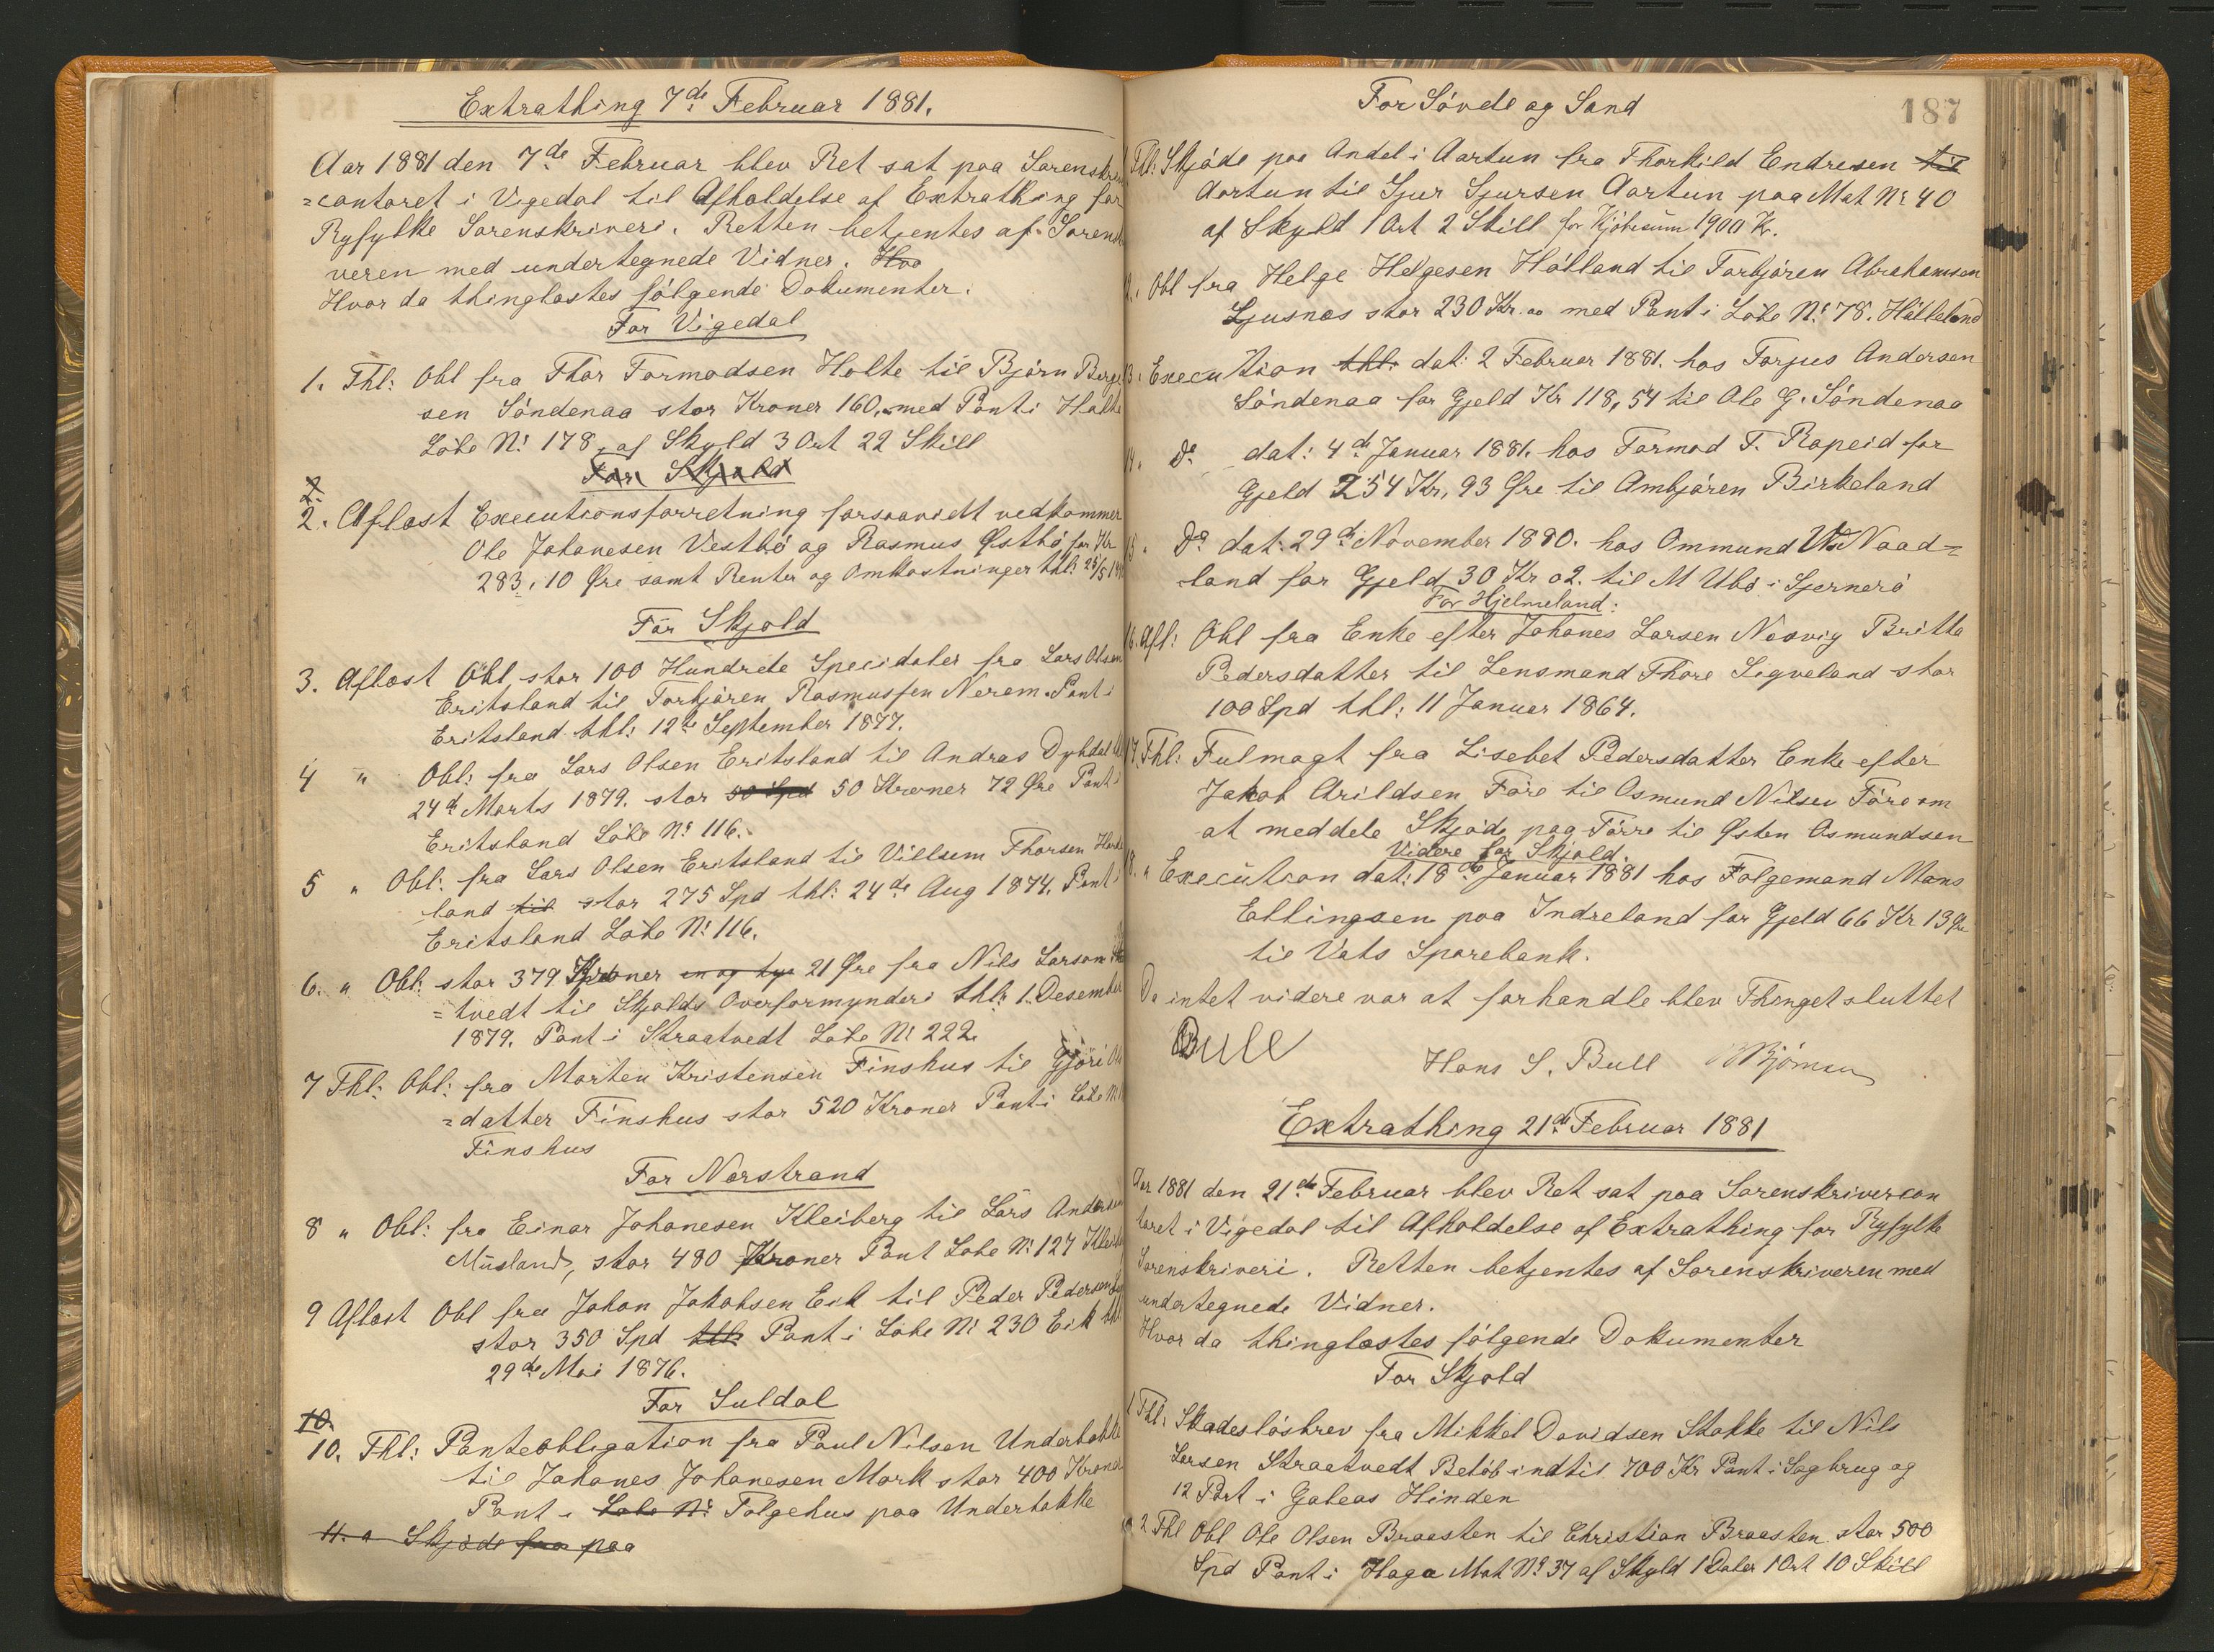 Extrathing 7de Februar 1881.
Aar 1881 den 7de Februar blev Ret sat paa Sorenskri
=contoret i Vigedal til Afholdelse af Extrathing for
Ryfylke Sorenskriveri. Retten betjentes af Sorensk
veren med undertegnede Vidner. Hvo
Hvor da thinglæstes følgende Dokumenter.
For Vigedal
1. Thl: Obl fra Thor Tormodsen Holte til Bjørn Berge
sen Søndenaa stor Kroner 160, med Pant i Holte
Løbe No 178, af Skyld 3 Ort 22 Skill
For Skjold
2.
2. Aflæst Executionsforretning forsaavidt vedkommer
Ole Johanesen Vestbø og Rasmus Østbø for Kr
283,10 Øre samt Renter og Omkostninger thl: 25/5 18
For Skjold
3. Aflæst Obl stor 100 Hundrede Specidaler fra Lars Olsen
Eritsland til Torbjøren Rasmussen Nerem. Pant i
Eritsland thl: 12te September 1877.
4 " Obl: fra Lars Olsen Eritsland til Andras Dybdal
24de Marts 1879. stor 50 Spd 50 Kroner 72 Øre Pant i
Eritsland Løbe No 116.
5 " Obl: fra Lars Olsen Eritsland til Villsem Thorsen
land til stor 275 Spd thl: 24de Aug 1874. Pant i
Eritsland Løbe No 116.
6. " Obl: stor 379 Kroner en og tyve 21 Øre fra Nils Larsen
=tvedt til Skjolds Overformynderi thl: 1. Desember
1879. Pant i Straatvedt Løbe No 222.
7 Thl: Obl: fra Morten Kristensen Finshus til Gjøri
=datter Finshus stor 520 Kroner Pant i Løbe No
Finshus
For Nærstrand
8 " Obl: fra Einar Johanesen Kleiberg til Lars Andersen
Musland, stor 480 Kroner Pant Løbe No 127
9 Aflæst Obl fra Johan Jakobsen Eik til Peder Pedersen
stor 350 Spd thl: Pant i Løbe No 230 Eik thl:
29de Mai 1876.
For Suldal
10.
10. Thl: Panteobligation fra Paul Nilsen Underbakke
til Johanes Johanesen Mork stor 400 Kroner
Pant i Løbe No Folgehus paa Underbakke
11. " Skjøde fra paa
For Søvde og Sand
187
Thl: Skjøde paa Andel i Aartun fra Thorkild Endresen til
Aartun til Sjur Sjursen Aartun paa Mat No 40
af Skyld 1 Ort 2 Skill for Kjøbesum 1900 Kr.
Obl fra Helge Helgesen Hølland til Torbjøren Abrahamsen
Ljusnæs stor 230 Kr. 00 med Pant i Løbe No 78. Hølleland
13. Execution thl. dat: 2 Februar 1881. hos Torjus Andersen
Søndenaa for Gjeld Kr 118,54 til Ole G. Søndenaa
14. Do dat: 4de Januar 1881. hos Tormod T. Rapeid for
Gjeld 254 Kr, 93 Øre til Ambjøren Birkeland
15. Do dat: 29de November 1880. hos Ommund Naad=
land for Gjeld 30 Kr 02. til M Ubø i Sjernerø
For Hjelmeland:
16. Afl: Obl fra Enke efter Johanes Larsen Nøsvig Britta
Pedersdatter til Lensmand Thore Sigveland stor
100 Spd thl: 11 Januar 1864.
17. Thl: Fulmagt fra Lisebet Pedersdatter Enke efter
Jakob Arildsen Føre til Osmund Nilsen Føre om
at meddele Skjøde paa Førre til Østen Osmundsen
Videre for Skjold.
18. " Execution dat: 18de Januar 1881 hos Folgemand Mons
Ellingsen paa Indreland for Gjeld 66 Kr 13 Øre
til Vats Sparebank.
Da intet videre var at forhandle blev Thinget sluttet
Bull
Hans S. Bull
Extrathing 21de Februar 1881
Aar 1881 den 21de Februar blev Ret sat paa Sorenskrivercon
toret i Vigedal til Afholdelse af Extrathing for Ryfylke
Sorenskriveri. Retten betjentes af Sorenskriveren med
undertegnede Vidner.
Hvor da thinglæstes følgende Dokumenter
For Skjold
1 Thl: Skadesløsbrev fra Mikkel Davidsen Stakke til Nils
Larsen Straatvedt Beløb indtil 700 Kr Pant i Sagbrug og
12 Part i Galeas Hinden
2 Thl Obl Ole Olsen Braasten til Christian Braasten stor 500
Spd Pant i Haga Mat No 37 af Skyld 1 Daler 1 Ort 10 Skill